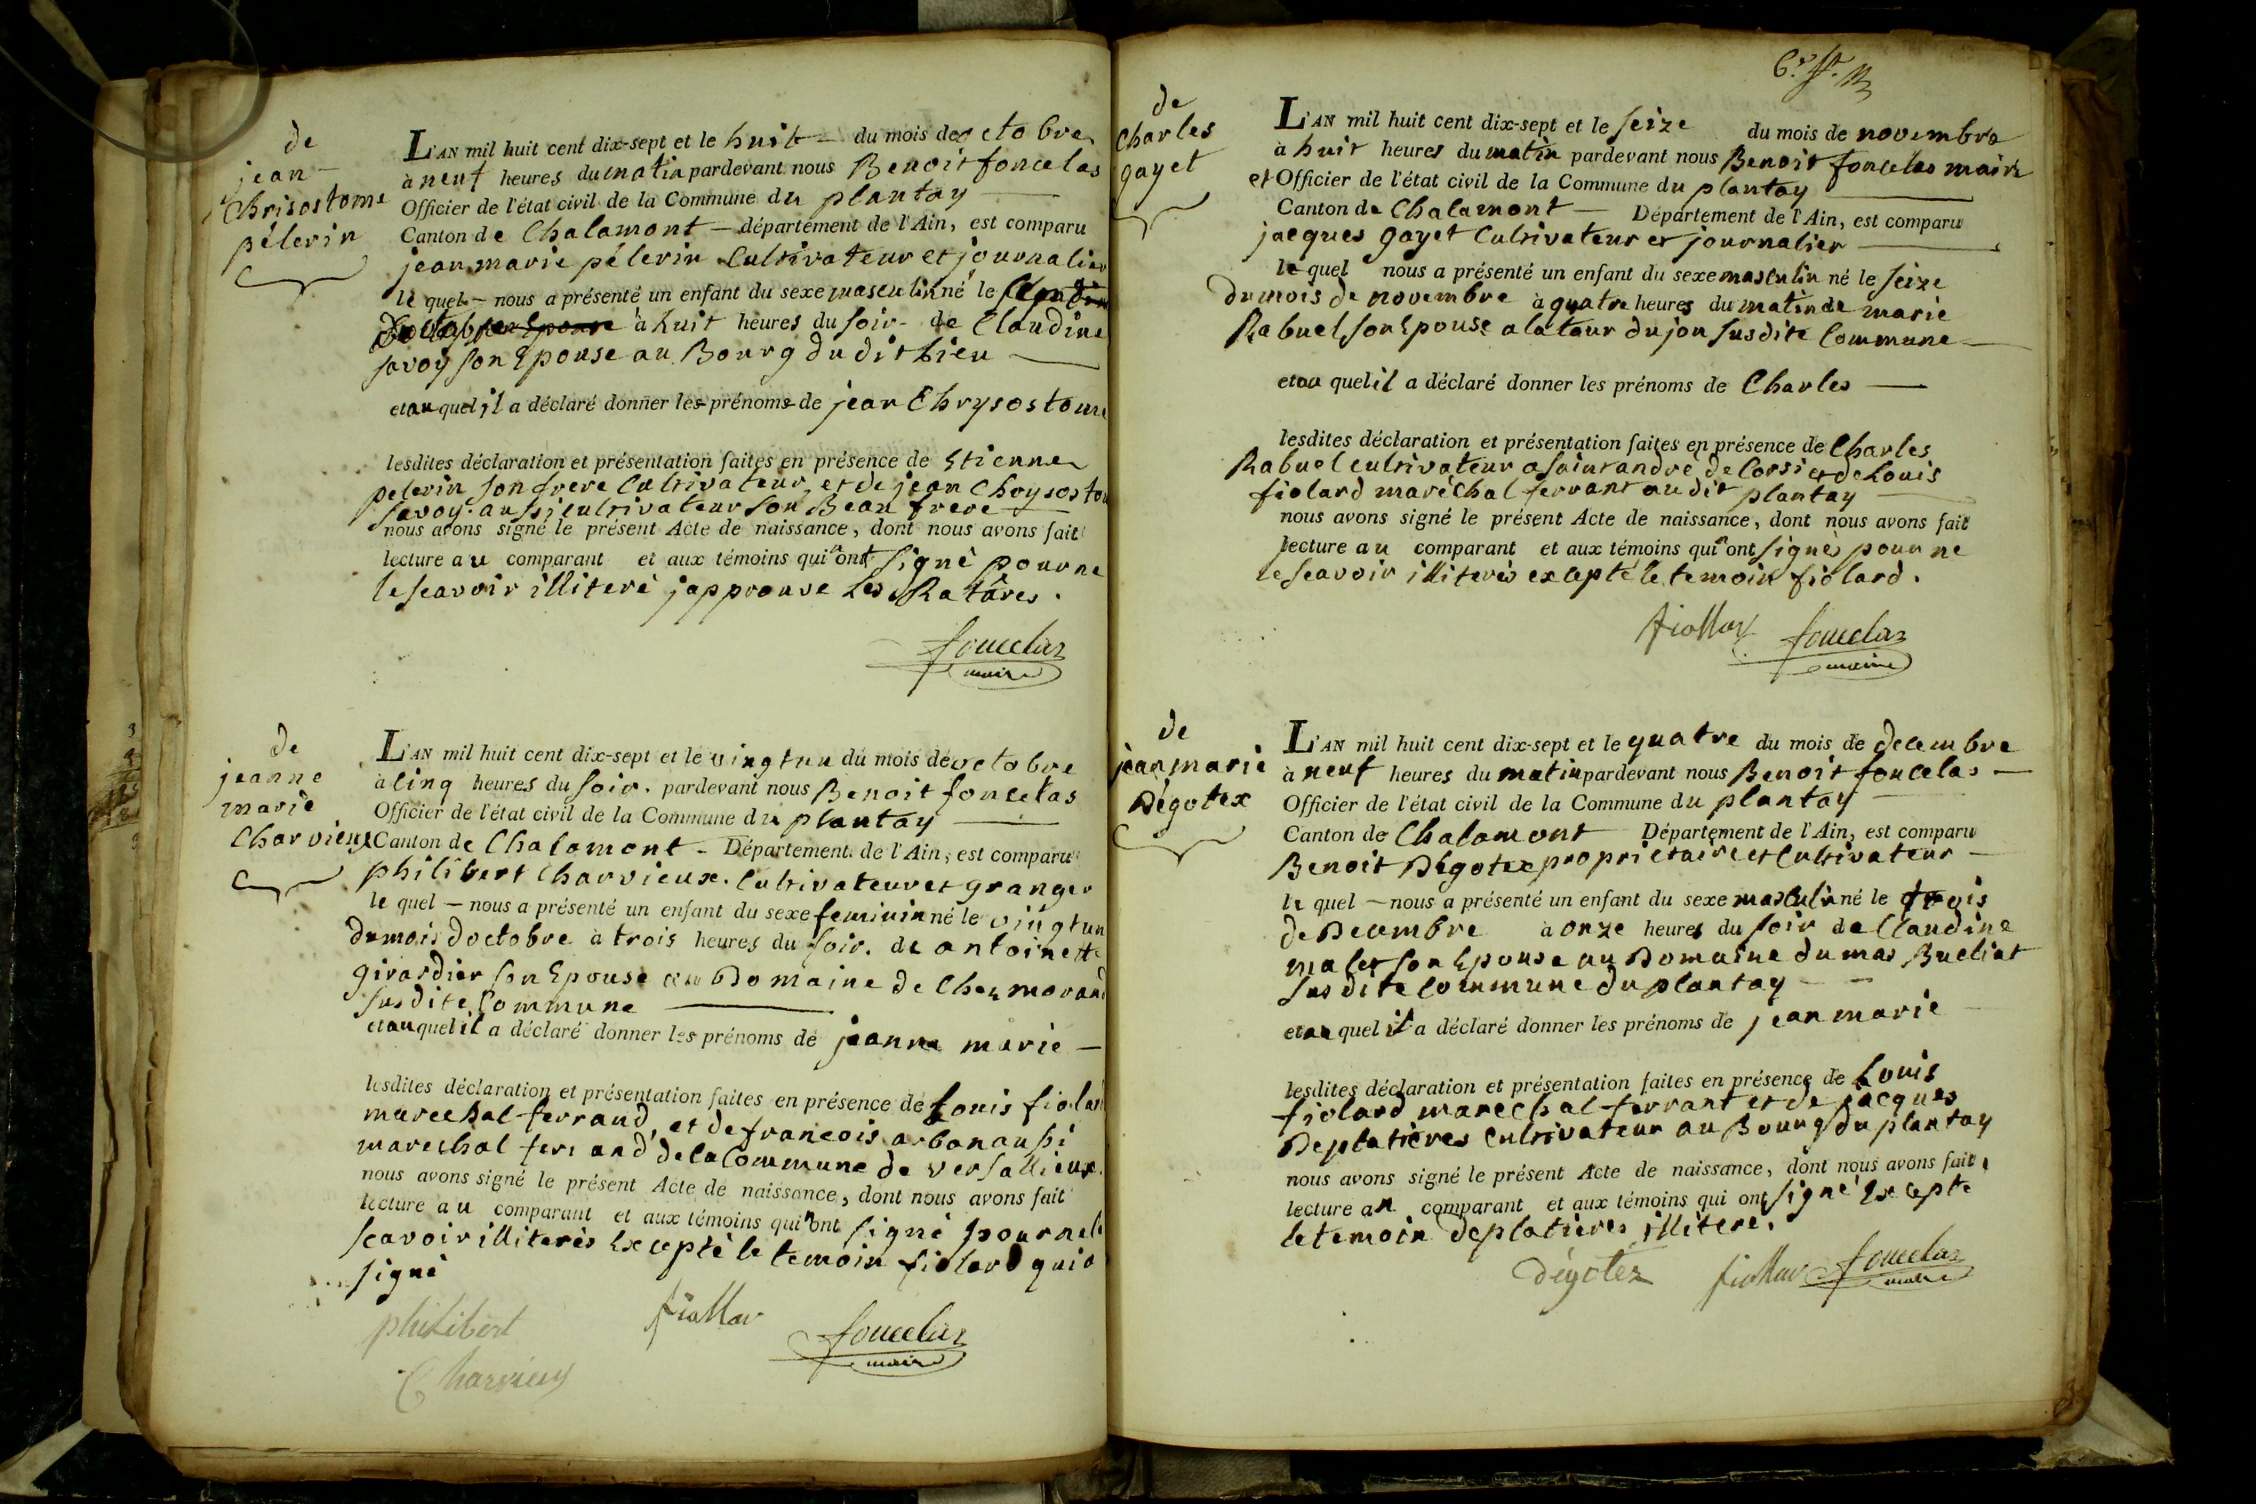 de
jean
Chrisostome
pélerin
L'AN mil huit cent dix-sept et le huit du mois doctobre
à neuf heures du matin pardevant nous Benoit foncelas
Officier de l'état civil de la Commune du plantay
Canton de Chalamont département de l'Ain, est comparu
jean marie pélerin Cultivateur et journalier
le quel nous a présenté un enfant du sexe masculin né le
à huit heures du soir de Claudine
savoy son Epouse au Bourg du dit Lieu
et au quel il a déclaré donner les prénoms de jean Chrysostome
lesdites déclaration et présentation faites en présence de Etienne
pelerin son frere Cultivateur, et de jean Chrysostom
savoy aussi cultivateur son Beau frere
nous avons signé le présent Acte de naissance, dont nous avons fait
lecture au comparant et aux témoins qui n'ont signé pour ne
le scavoir illiteré japprouve les Ratûres.
foncelas
maire
de
jeanne
marie
Charvieux
L'AN mil huit cent dix-sept et le vingt un du mois de octobre
à Cinq heures du soir. pardevant nous Benoit foncelas
Officier de l'état civil de la Commune du plantay
Canton de Chalamont Département de l'Ain, est comparu
philibert Charvieux. Cultivateur et granger
le quel nous a présenté un enfant du sexe feminin né le vingt un
du mois doctobre à trois heures du soir. de antoinette
girardier son Epouse au Domaine de Chez morand
susdite Commune
et au quel il a déclaré donner les prénoms de jeanne marie
lesdites déclaration et présentation faites en présence de Louis fiolard
marechal ferrand, et de francois arbon aussi
marechal ferrand de la Commune de versallieux.
nous avons signé le présent Acte de naissance, dont nous avons fait
lecture au comparant et aux témoins qui n'ont signé pour ne le
scavoir illiterés Excepté le temoin fiolard qui a
signé
philibert
Charvieux
fiollar
foncelas
maire
de
Charles
gayet
L'AN mil huit cent dix-sept et le seize du mois de novembre
à huit heures du matin pardevant nous Benoit foncelas maire
et Officier de l'état civil de la Commune du plantay
Canton de Chalamont Département de l'Ain, est comparu
jacques gayet Cultivateur et journalier
le quel nous a présenté un enfant du sexe masculin né le seize
du mois de novembre à quatre heures du matin de marie
Rabuel son Epouse a la tour du jon susdite Commune
et au quel il a déclaré donner les prénoms de Charles
lesdites déclaration et présentation faites en présence de Charles
Rabuel cultivateur a saint andré de Corsi et de Louis
fiolard maréchal ferrant au dit plantay
nous avons signé le présent Acte de naissance, dont nous avons fait
lecture au comparant et aux témoins qui n'ont signés pour ne
le scavoir illiterés excepté le temoin fiolard.
fiollar
foncelas
maire
de
jean marie
Dégotex
L'AN mil huit cent dix-sept et le quatre du mois de decembre
à neuf heures du matin pardevant nous Benoit foncelas
Officier de l'état civil de la Commune du plantay
Canton de Chalamont Département de l'Ain, est comparu
Benoit Dégotex propriétaire et Cultivateur
le quel nous a présenté un enfant du sexe masculin né le trois
de Decembre à onze heures du soir de Claudine
malet son Epouse au Domaine du mas Bucliat
susdite Commune du plantay
et au quel il a déclaré donner les prénoms de jean marie
lesdites déclaration et présentation faites en présence de Louis
fiolard marechal ferrant et de jacques
Deplatieres Cultivateur au Bourg du plantay
nous avons signé le présent Acte de naissance, dont nous avons fait
lecture au comparant et aux témoins qui ont signé Excepté
le temoin deplatieres illiteré.
dégotéx
fiollar
foncelas
maire